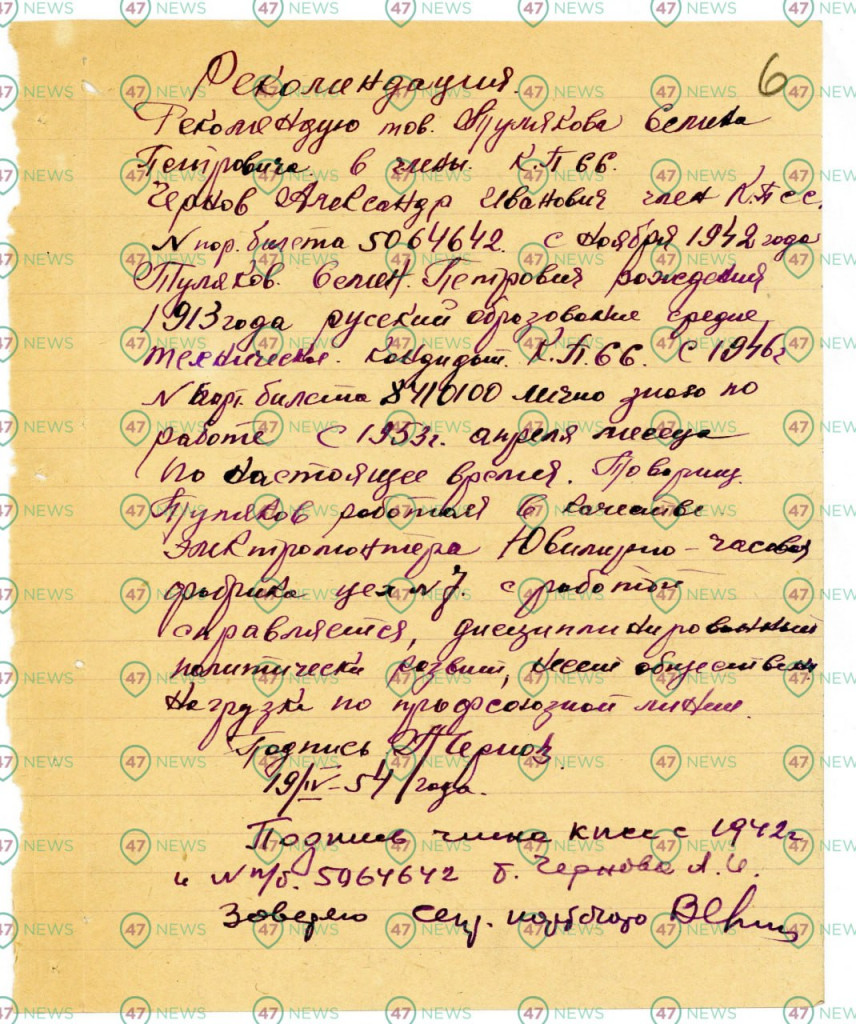 6
Рекомендация.
Рекомендую тов. Тулякова Семена
Петровича. в члены. К.П СС.
Чернов Александр Иванович член К.П СС.
N пар. билета 5064642. с ноября 1942 года
Туляков. Семен. Петрович рождения
1913 года русский образование средне
техническое. кандидат. К.П.СС. с 1946 г
N парт. билета 8410100 лично знаю по
работе с 1953 г. апреля месеца
по настоящее время. Товарищ.
Туляков работает в качестве
Электромонтера Ювилирно-часовая
фабрика цех N 7. с работой
справляется, дисциплинированный
политически развит, несет обществен
нагрузки по профсоюзной линии.
Подпись Чернов
19/IV-54 года.
Подпись члена кпсс с 1942 г
и N п/б. 5064642 т. Чернова А. И.
Заверяю секр. партбюро
47 NEWS